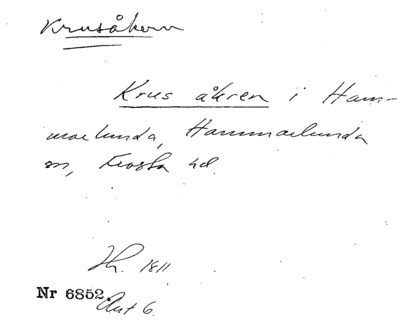 Krusåkern
Krus åkren i Ham-
marlunda, Hammarlunda
sn, Frosta hd.
Lh. 1811
Nr 6852. Akt 6.